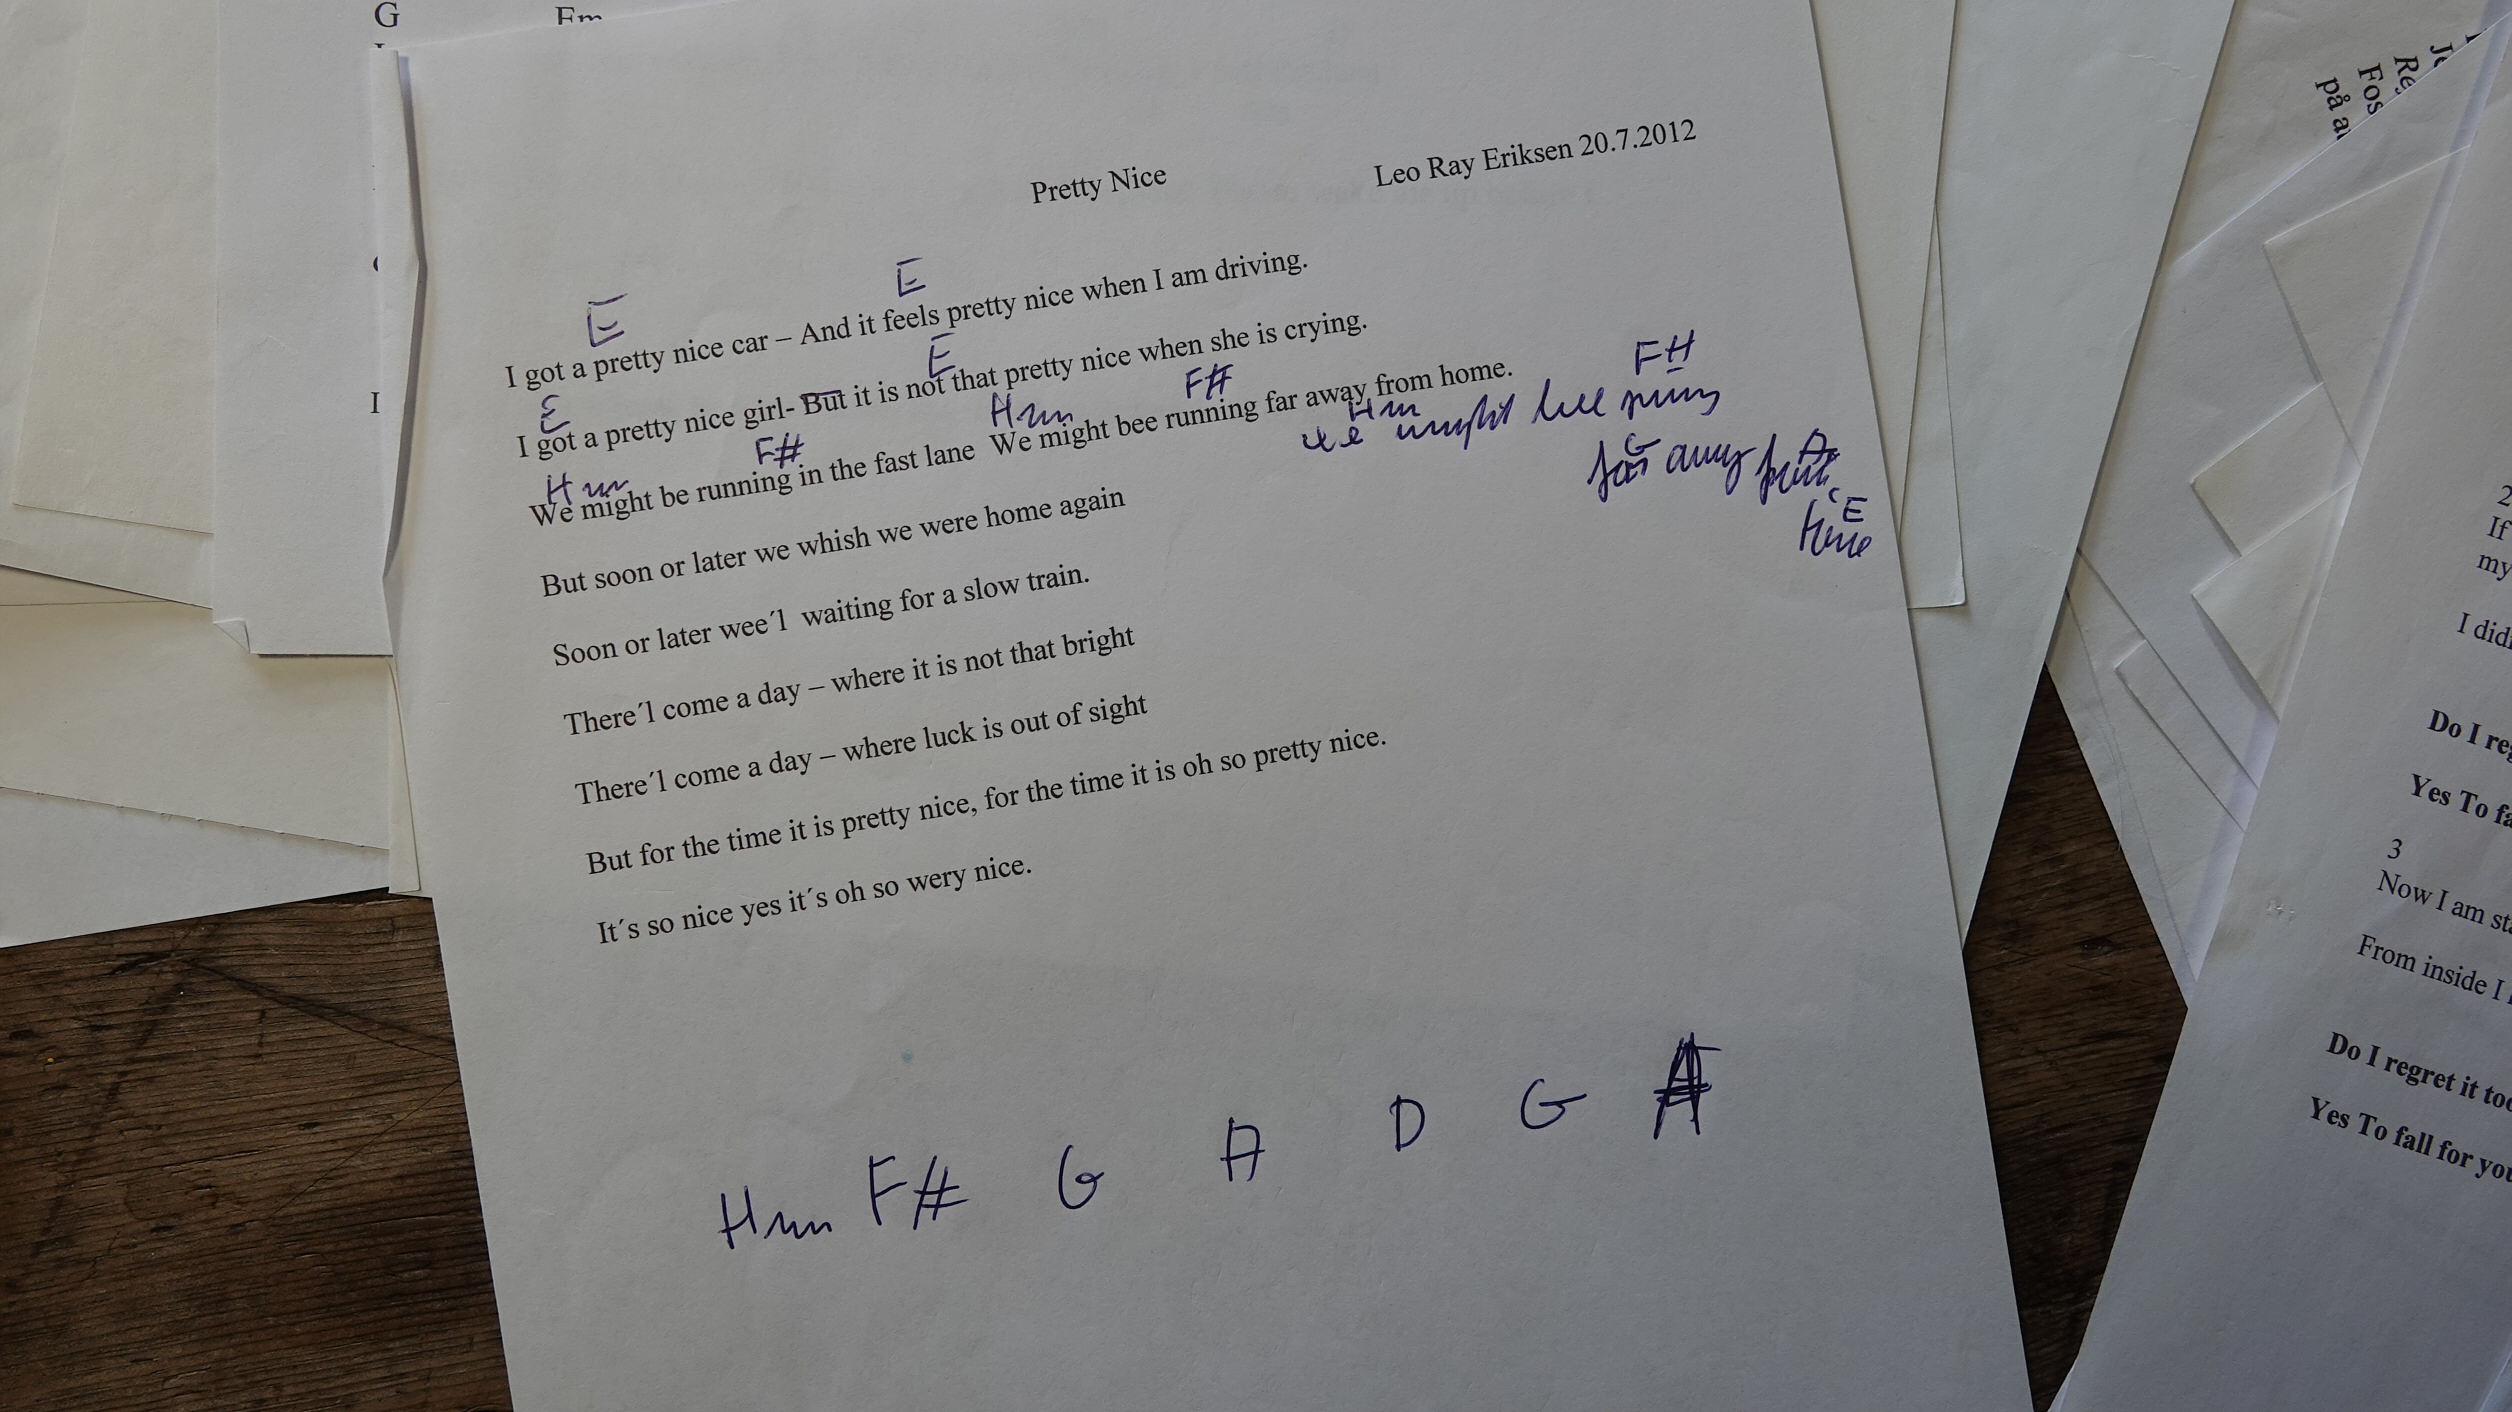 G Em
Pretty Nice Leo Ray Eriksen 20.7.2012
E E
I got a pretty nice car – And it feels pretty nice when I am driving.
E E
I got a pretty nice girl- But it is not that pretty nice when she is crying.
Hm F# Hm F#
We might be running in the fast lane We might bee running far away from home.
Hm F#
we might bee
G A
far away from
E
home
But soon or later we whish we were home again
Soon or later wee´l waiting for a slow train.
There´l come a day – where it is not that bright
There´l come a day – where luck is out of sight
But for the time it is pretty nice, for the time it is oh so pretty nice.
It´s so nice yes it´s oh so wery nice.
Hm F# G A D G A
I
Fos
på
2
If
my
I
Do I
Yes To
3
Now I am
From inside I
Do I regret it too
Yes To fall for you